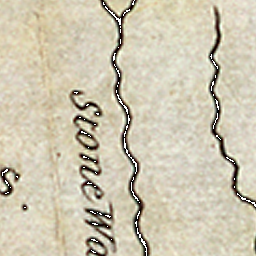 Stone Wa